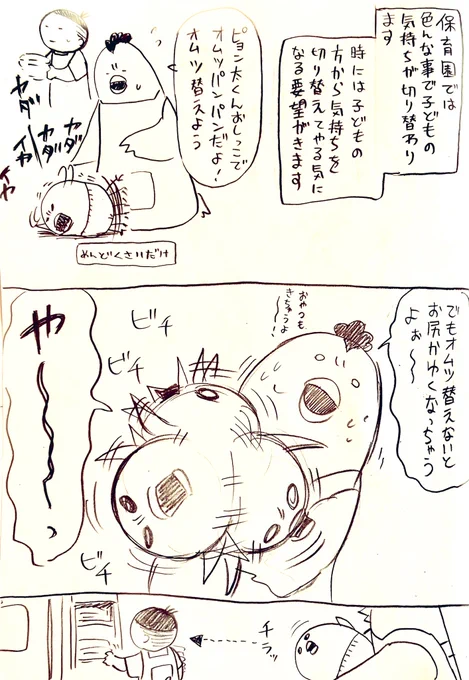 保育園では
色んな事で子どもの
気持ちが切り替わり
ます
時には子どもの
方から気持ちを
切り替えてやる気に
なる要望がきます
ピョン太くんおしっこで
オムツパンパンだよ!
オムツ替えよう
ヤダ
ヤダ
ヤダ
イヤ
イヤ
めんどくさいだけ
でもオムツ替えないと
お尻かゆくなっちゃう
よぉ〜〜
おやつも
きちゃうよ
〜〜!
ビチ
ビチ
ビチ
や
チラッ